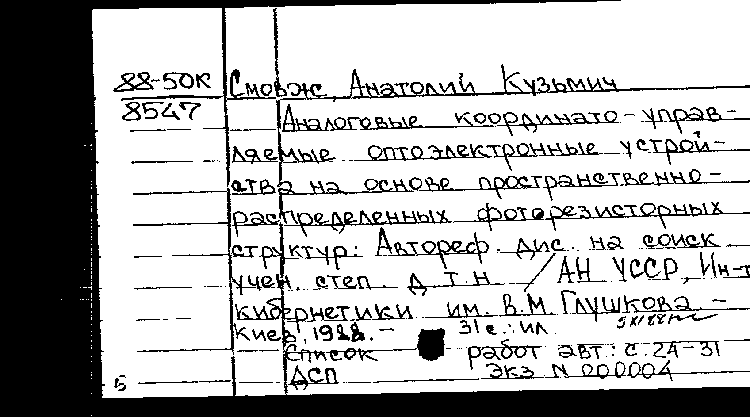 88-50К Смовж, Анатолий Кузьмич
8547
Аналоговые координато-управ-
ляемые оптоэлектронные устрой-
ства на основе пространственно-
распределенных фоторезисторных
структур: Автореф. дис. на соиск
учен. степ. д.т.н. / АН УССР, Ин-т
кибернетики им. В.М. Глушкова. -
Киев, 1988. - 31 с.: ил.
Список работ авт.: с. 24-31
ДСП Экз N 000004
Б